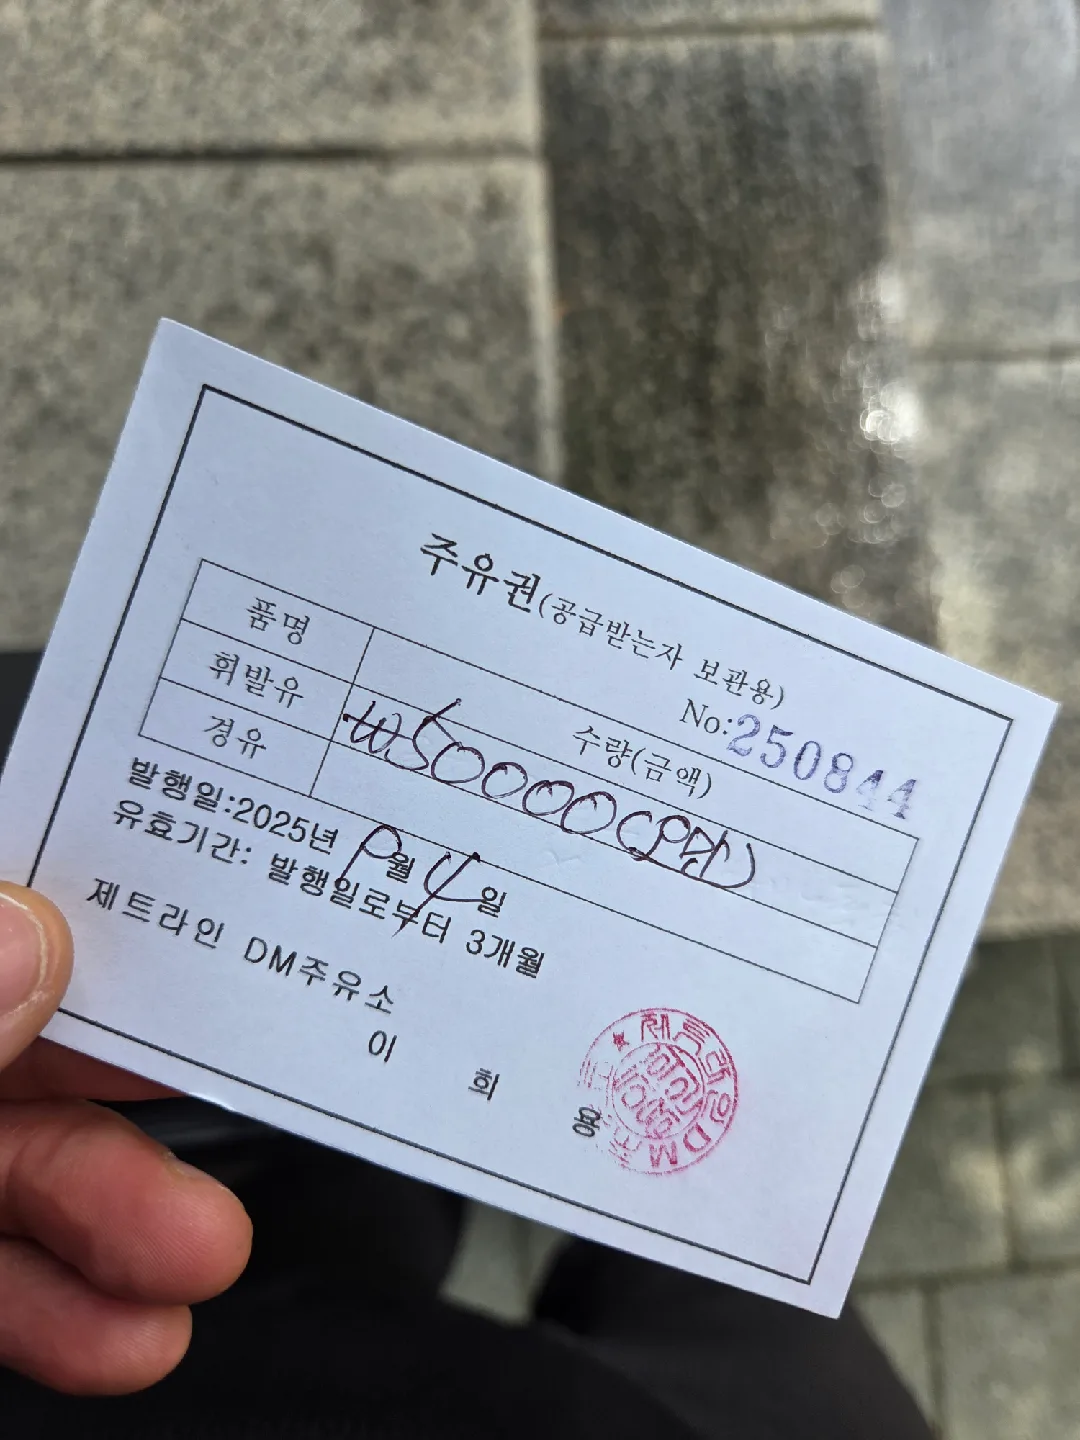 주유권(공급받는자 보관용)
No:250844
품명 수량(금액)
휘발유 ₩50000(오만)
경유
발행일:2025년 9월 4일
유효기간: 발행일로부터 3개월
제트라인 DM주유소
이 희 용
제트라인DM주유소